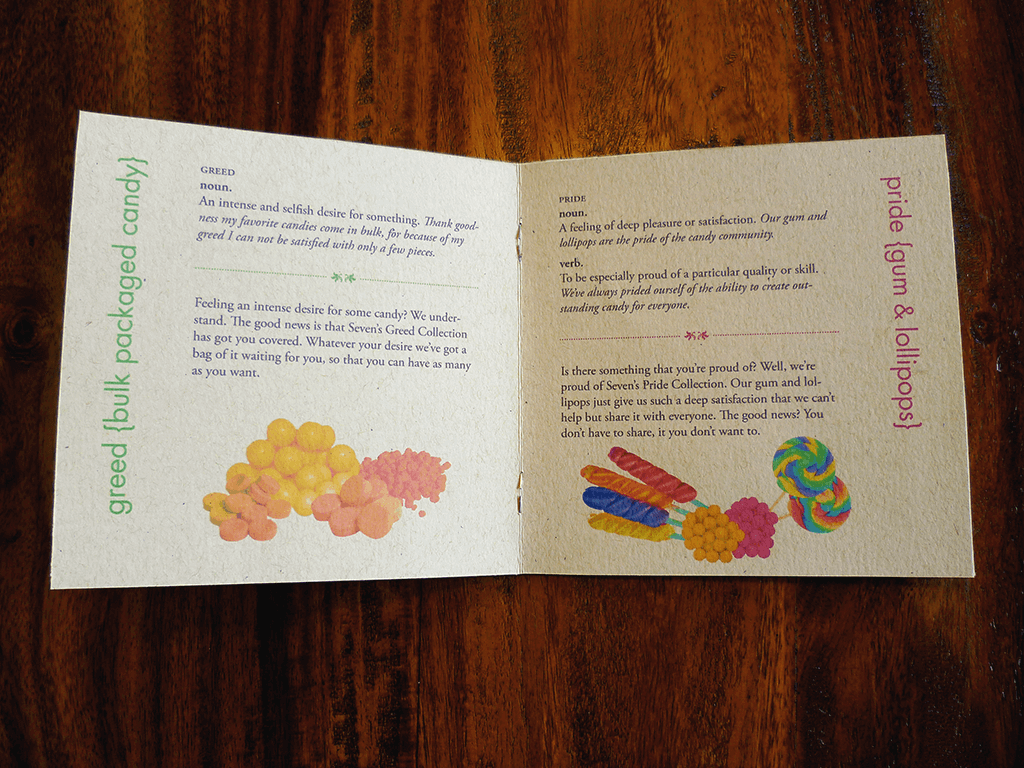 greed {bulk packaged candy}
GREED
noun.
An intense and selfish desire for something. Thank good-
ness my favorite candies come in bulk, for because of my
greed I can not be satisfied with only a few pieces.
Feeling an intense desire for some candy? We under-
stand. The good news is that Seven's Greed Collection
has got you covered. Whatever your desire we've got a
bag of it waiting for you, so that you can have as many
as you want.
PRIDE
noun.
A feeling of deep pleasure or satisfaction. Our gum and
lollipops are the pride of the candy community.
verb.
To be especially proud of a particular quality or skill.
We've always prided ourself of the ability to create out-
standing candy for everyone.
Is there something that you're proud of? Well, we're
proud of Seven's Pride Collection. Our gum and lol-
lipops just give us such a deep satisfaction that we can't
help but share it with everyone. The good news? You
don't have to share, it you don't want to.
pride {gum & lollipops}